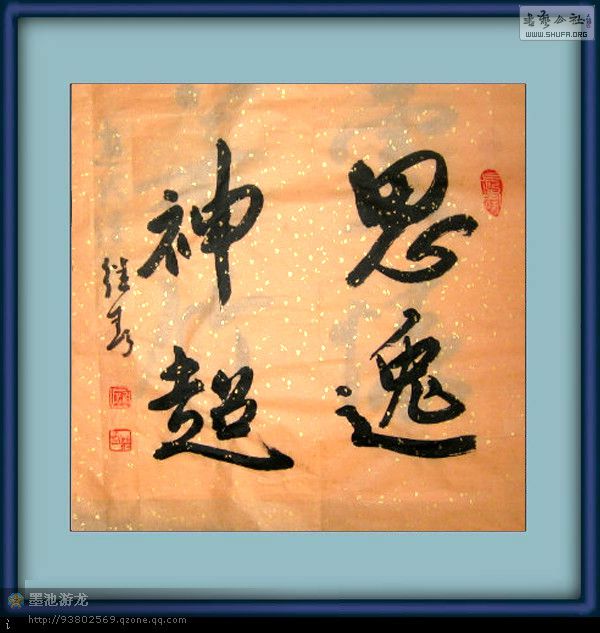 書藝公社
WWW.SHUFA.ORG
思逸
神超
继
墨池游龙
http://93802569.qzone.qq.com